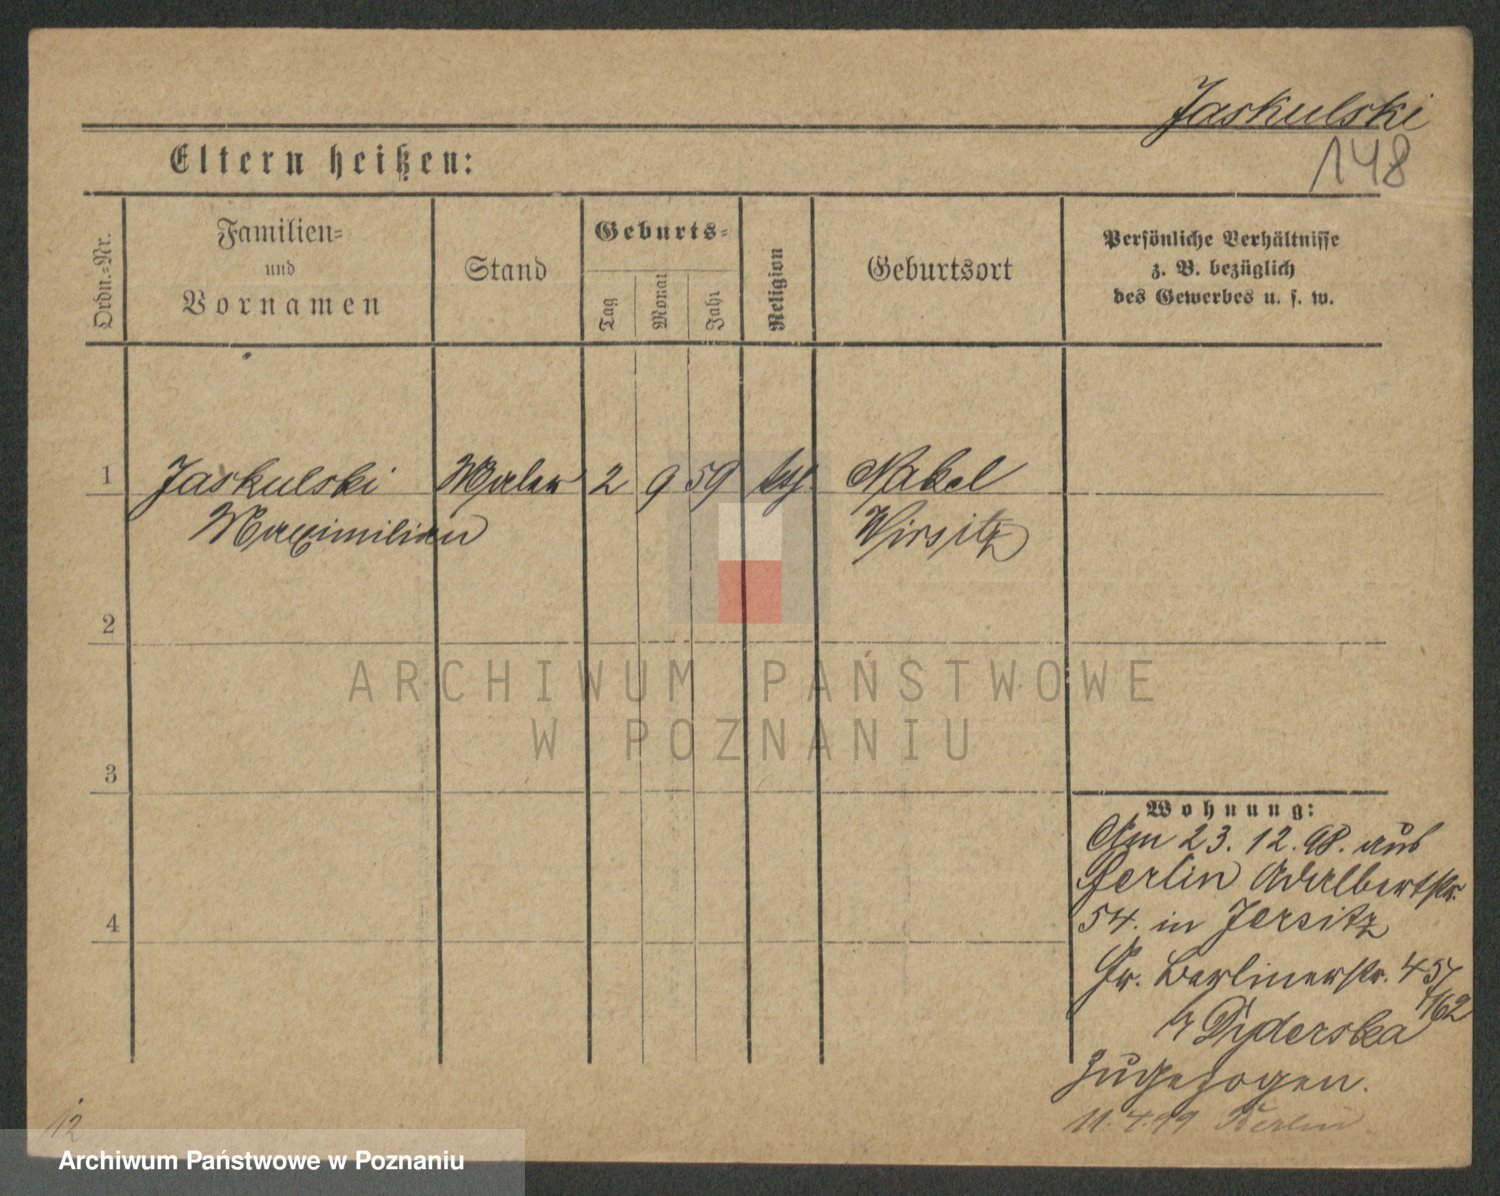 Jaskulski
148
Eltern heißen:
Ordn.=Nr.
Familien=
und
Vornamen
Stand
Geburts=
Tag
Monat
Jahr
Religion
Geburtsort
Persönliche Verhältnisse
z. B. bezüglich
des Gewerbes u. s. w.
1 Jaskulski Maler 2 9 59 kth. Nakel
Maximilian Wirsitz
2
ARCHIWUM PAŃSTWOWE
W POZNANIU
3
Wohnung:
Am 23. 12. 98. aus
Berlin Adalbertstr.
54. in Jersitz
4
Gr. Berlinerstr. 457
/62
b/ Dyderska
zugezogen.
11.4.99 Berlin
12
Archiwum Państwowe w Poznaniu